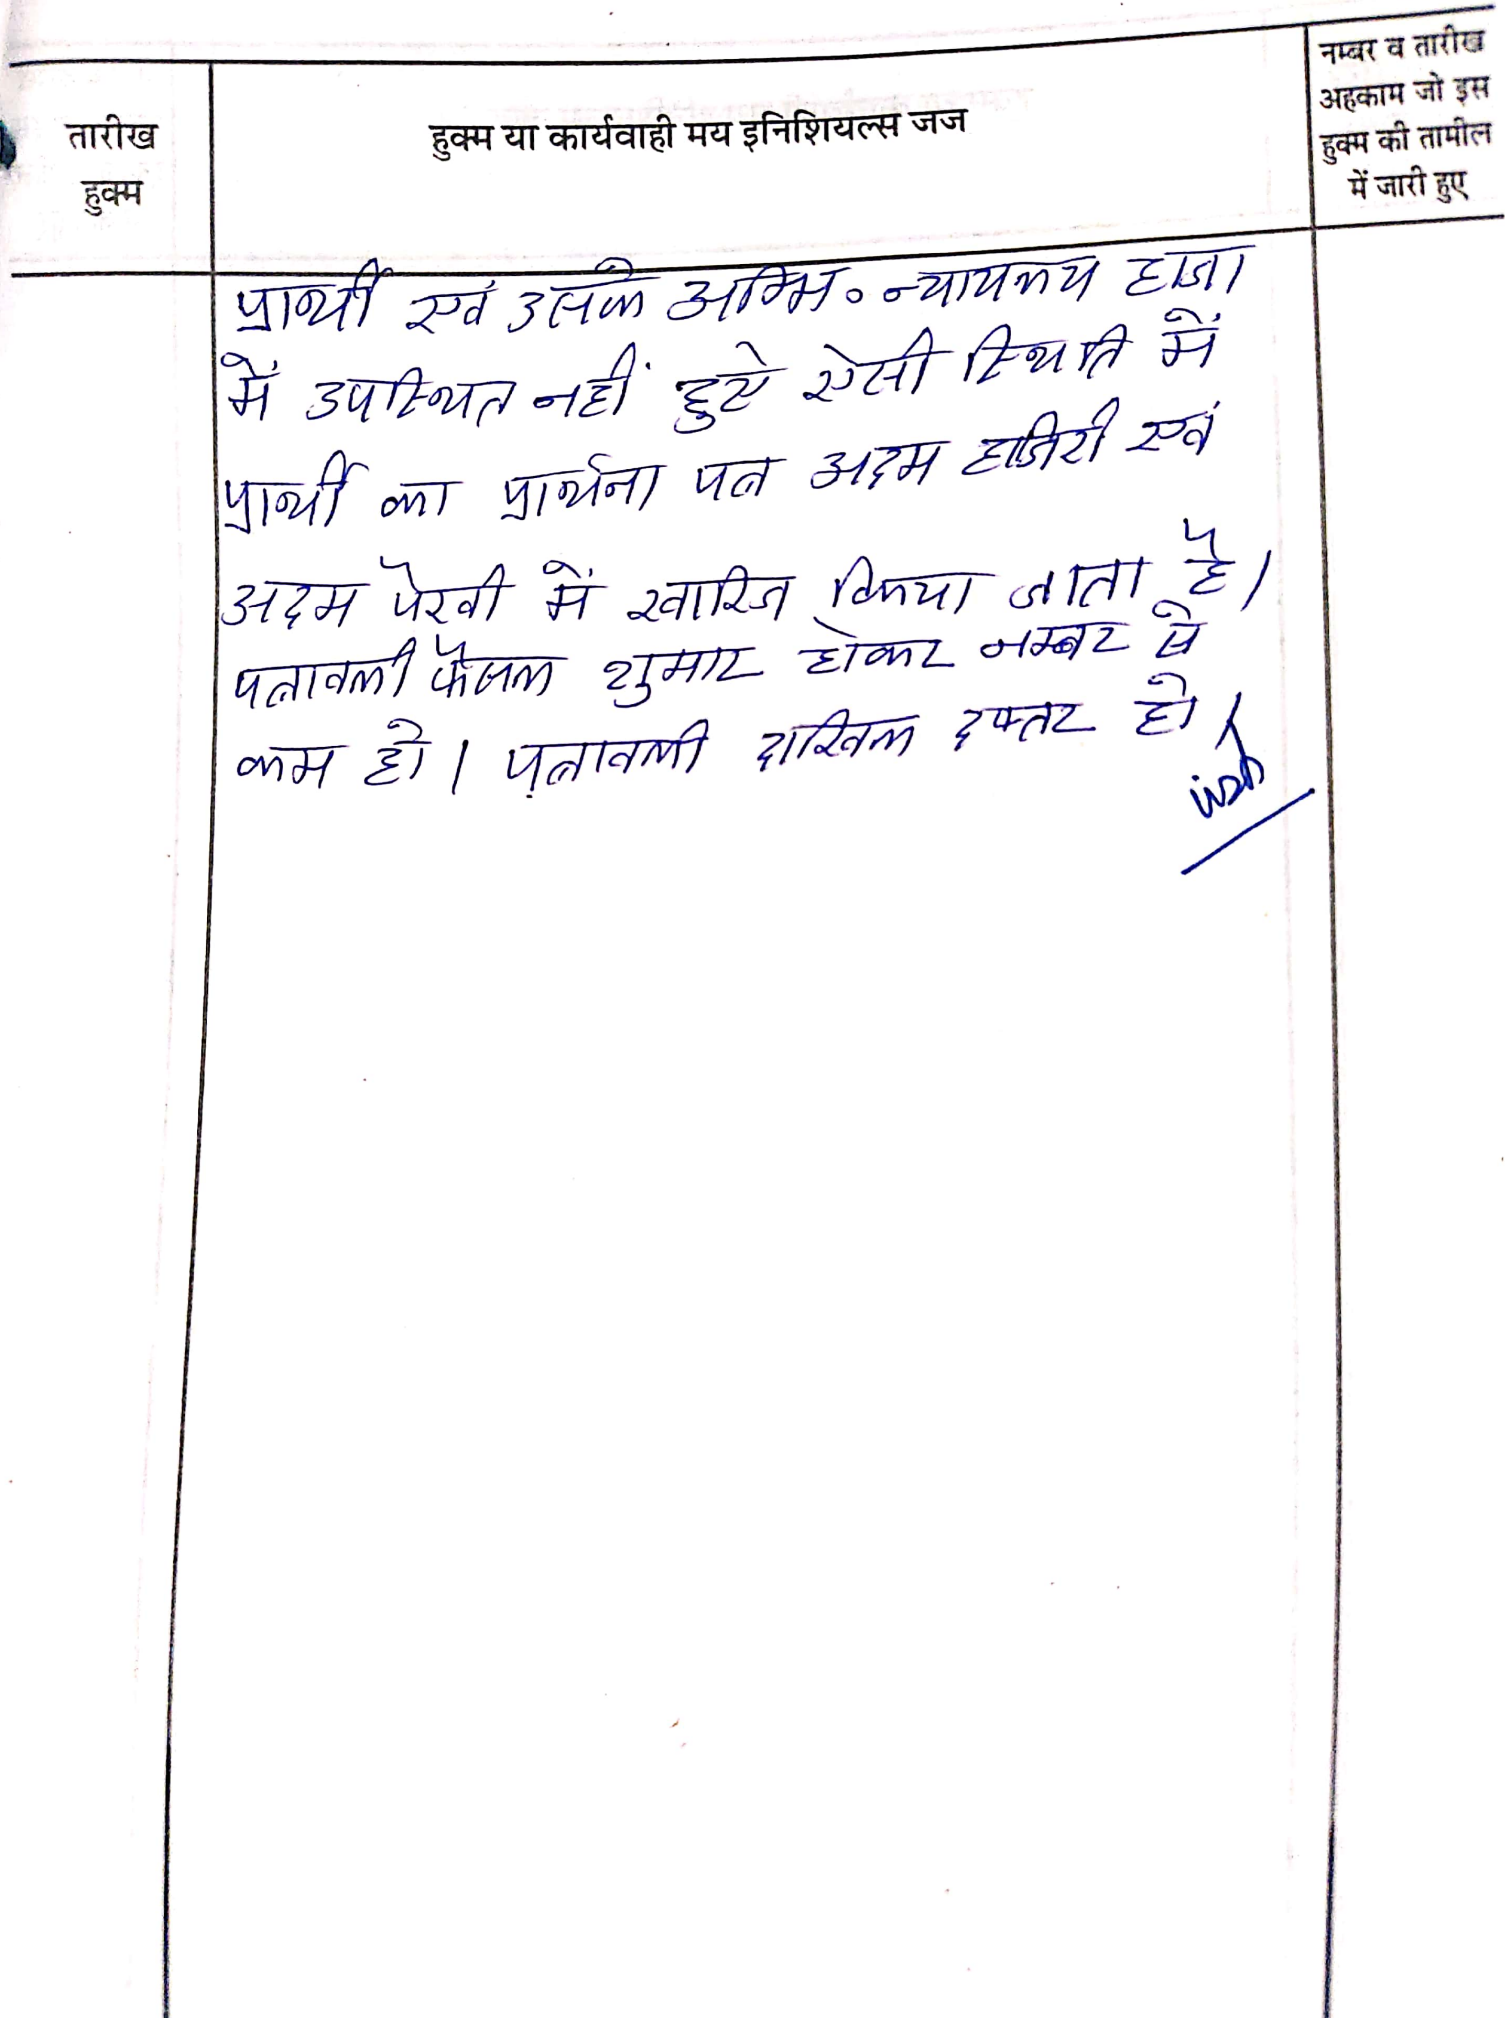 तारीख
हुक्म
हुक्म या कार्यवाही मय इनिशियल्स जज
नम्बर व तारीख
अहकाम जो इस
हुक्म की तामील
में जारी हुए
प्रार्थी एवं उसके अभि० न्यायलय हाजा
में उपस्थित नहीं हुए ऐसी स्थिति में
प्रार्थी का प्रार्थना पत्र अदम हाजिरी एवं
अदम पैरवी में खारिज किया जाता है।
पत्रावली फैसल शुमार होकर नम्बर से
कम हो। पत्रावली दाखिल दफ्तर हो।